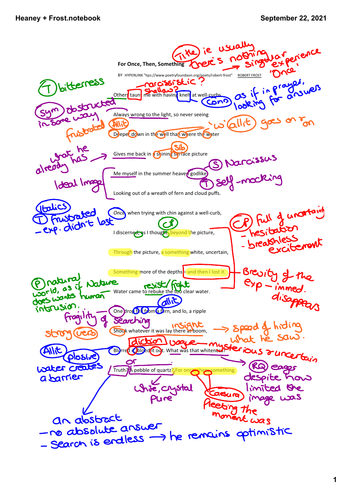 Heaney + Frost.notebook
September 22, 2021
Title ie usually there's nothing
→ singular experience 'Once'
For Once, Then, Something
BY HYPERLINK "https://www.poetryfoundation.org/poets/robert-frost" ROBERT FROST
narcissistic?
shallow?
T bitterness
Others taunt me with having knelt at well-curbs
Cons as if in prayer, looking for answers
Sym obstructed in some way
Always wrong to the light, so never seeing
frustrated Allit
'w' allit goes on + on
Deeper down in the well than where the water
Sib
what he already has
Gives me back in a shining surface picture
S Narcissus
Me myself in the summer heaven godlike
Ideal Image
T self-mocking
Looking out of a wreath of fern and cloud puffs.
Italics
T frustrated
- exp. didn't last
Once, when trying with chin against a well-curb,
CP
CP full of uncertainty
- hesitation
- breathless excitement
I discerned, as I thought, beyond the picture,
Through the picture, a something white, uncertain,
Something more of the depths—and then I lost it.
Brevity of the exp - immed. disappears
P natural world, as if Nature does want human intrusion.
resist/fight
Water came to rebuke the too clear water.
allit
One drop fell from a fern, and lo, a ripple
fragility of searching
insight
strong verb
Shook whatever it was lay there at bottom,
→ speed of hiding what he saw.
diction vague - mysterious + uncertain
Allit plosive
Blurred it, blotted it out. What was that whiteness?
water creates a barrier
or
Truth? A pebble of quartz? For once, then, something.
RQ eager despite how limited the image was
white, crystal
pure
Caesura
fleeting the moment was
an abstract
- no absolute answer
- search is endless → he remains optimistic
1